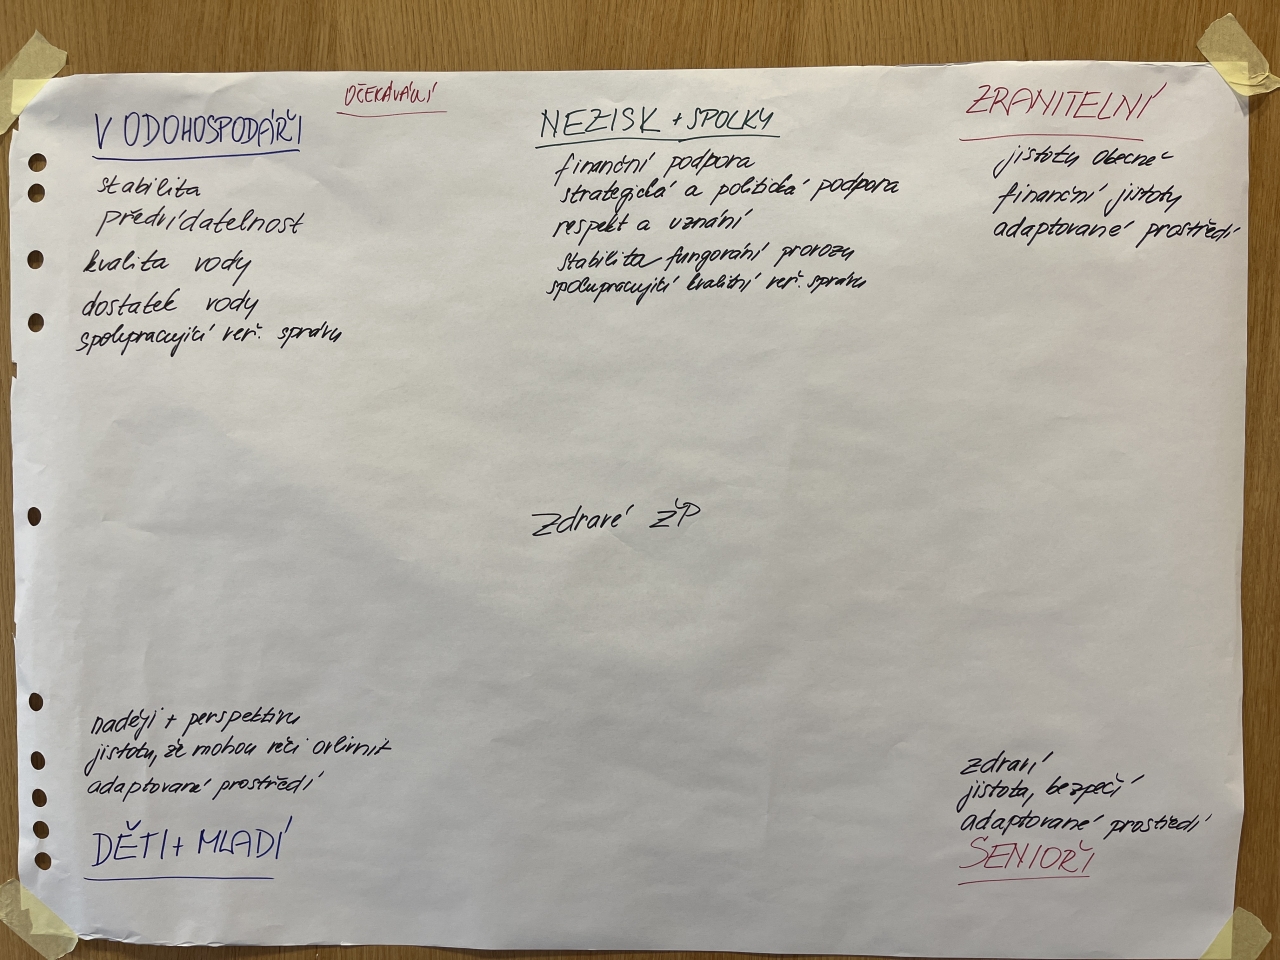 OČEKÁVÁNÍ
VODOHOSPODÁŘI
stabilita
předvídatelnost
kvalita vody
dostatek vody
spolupracující veř. správu
NEZISK + SPOLKY
finanční podpora
strategická a politická podpora
respekt a uznání
stabilita fungování provozu
spolupracující kvalitní veř. správu
ZRANITELNÍ
jistotu obecně
finanční jistoty
adaptované prostředí
Zdravé ŽP
naději + perspektivu
jistotu, že mohou věci ovlivnit
adaptované prostředí
DĚTI + MLADÍ
zdraví
jistota, bezpečí
adaptované prostředí
SENIOŘI